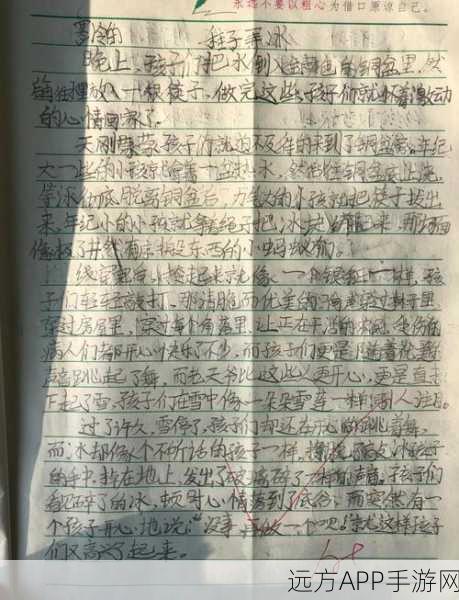 永远不要以粗心为借口原谅自己。
稚子弄冰
晚上，孩子们把水倒入金黄色的铜盆里，然
往里放入一根筷子，做完这些，孩子们就怀着激动
的心情回家了。
天刚蒙蒙，孩子们就迫不及待的来到了铜盆旁。年纪
大一些的小孩就端着一盆热水，然后往铜盆底上浇，
等冰彻底脱离铜盆后，力气大的小孩就把筷子拔出
来，年纪小的小孩就拿绳子把冰块起来，那
像极了
绕穿起来就像一个银钲一样，孩
子们轻轻敲打，那清脆而优美的响声穿过树子里
穿过房屋里，穿过每个角落里，让正在干活的
病人们都开心快乐了不少，而孩子们更是
声音跳起了舞，而老天爷比这些人更开心，更是直接
下起了雪，孩子们在雪中像一朵朵雪莲一样引人注目。
过了许久，雪停了，孩子们却还在开心的跳着舞，
而冰却像个不听话的孩子一样，孩子
的手中，掉在地上，发出了玻璃碎了一样的声音。孩子们
看见碎了的冰，顿时心情落到了低谷，而突然有一
个孩子开心地说：“没事，再做一个吧！”就这样孩子
们又高兴了起来。
远方APP手游网